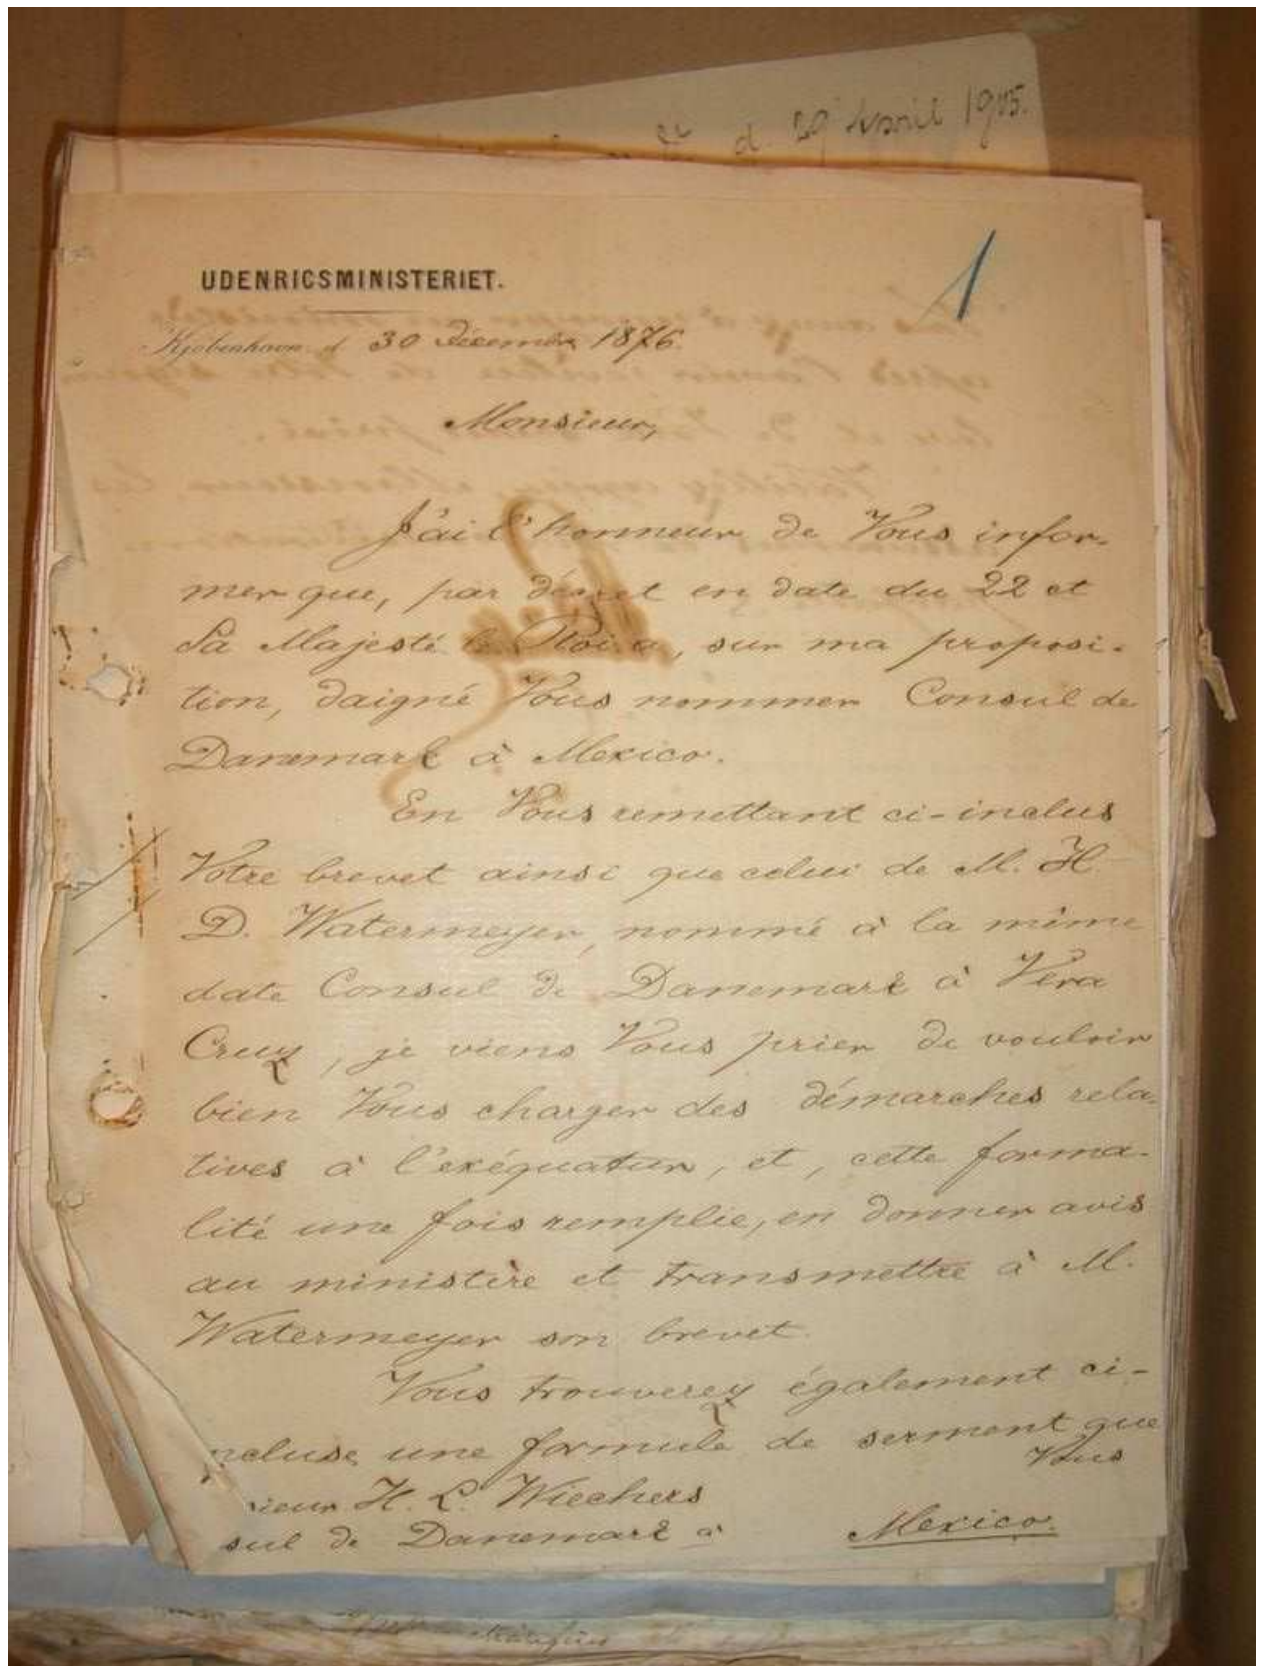 d. 29 April 1905.
1
UDENRIGSMINISTERIET.
Kjøbenhavn d. 30 décembre 1876.
Monsieur,
J'ai l'honneur de Vous infor-
mer que, par décret en date du 22 ct
Sa Majesté le Roi a, sur ma proposi-
tion, daigné Vous nommer Consul de
Danemark à Mexico.
En Vous remettant ci-inclus
Votre brevet ainsi que celui de M. H.
D. Watermeyer, nommé à la même
date Consul de Danemark à Vera
Cruz, je viens Vous prier de vouloir
bien Vous charger des démarches rela-
tives à l'exéquatur, et, cette forma-
lité une fois remplie, en donner avis
au ministère et transmettre à M.
Watermeyer son brevet.
Vous trouverez également ci-
ncluse une formule de serment que
Vous
sieur H. L. Wiechers
sul de Danemark à Mexico.